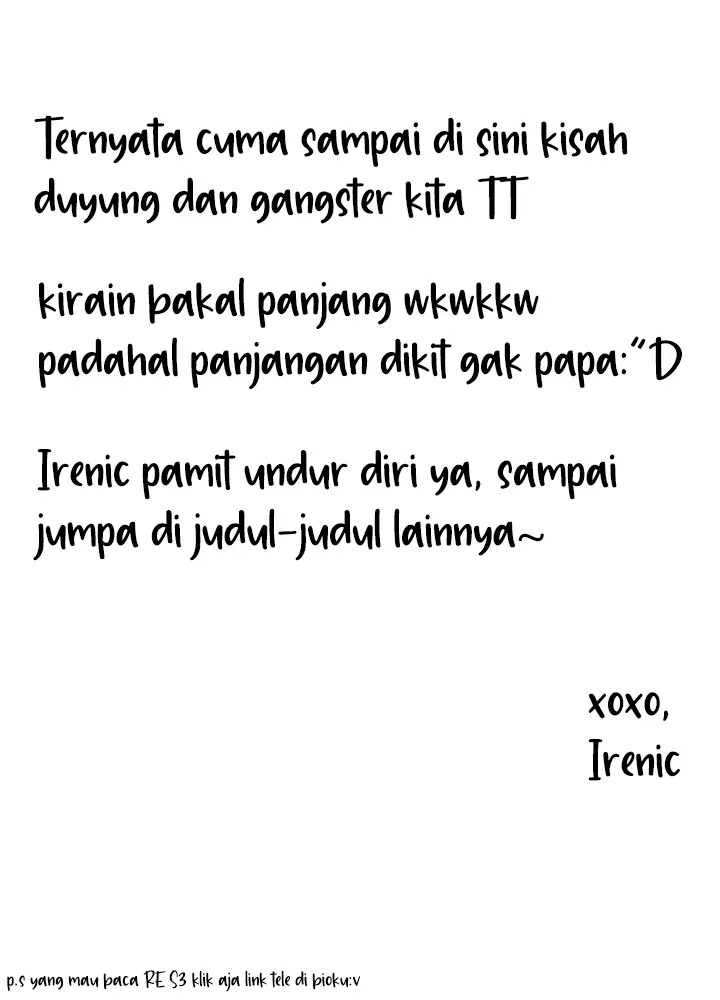 Ternyata cuma sampai di sini kisah
duyung dan gangster kita TT
kirain bakal panjang wkwkkw
padahal panjangan dikit gak papa:"D
Irenic pamit undur diri ya, sampai
jumpa di judul-judul lainnya~
xoxo,
Irenic
p.s yang mau baca RE S3 klik aja link tele di bioku:v